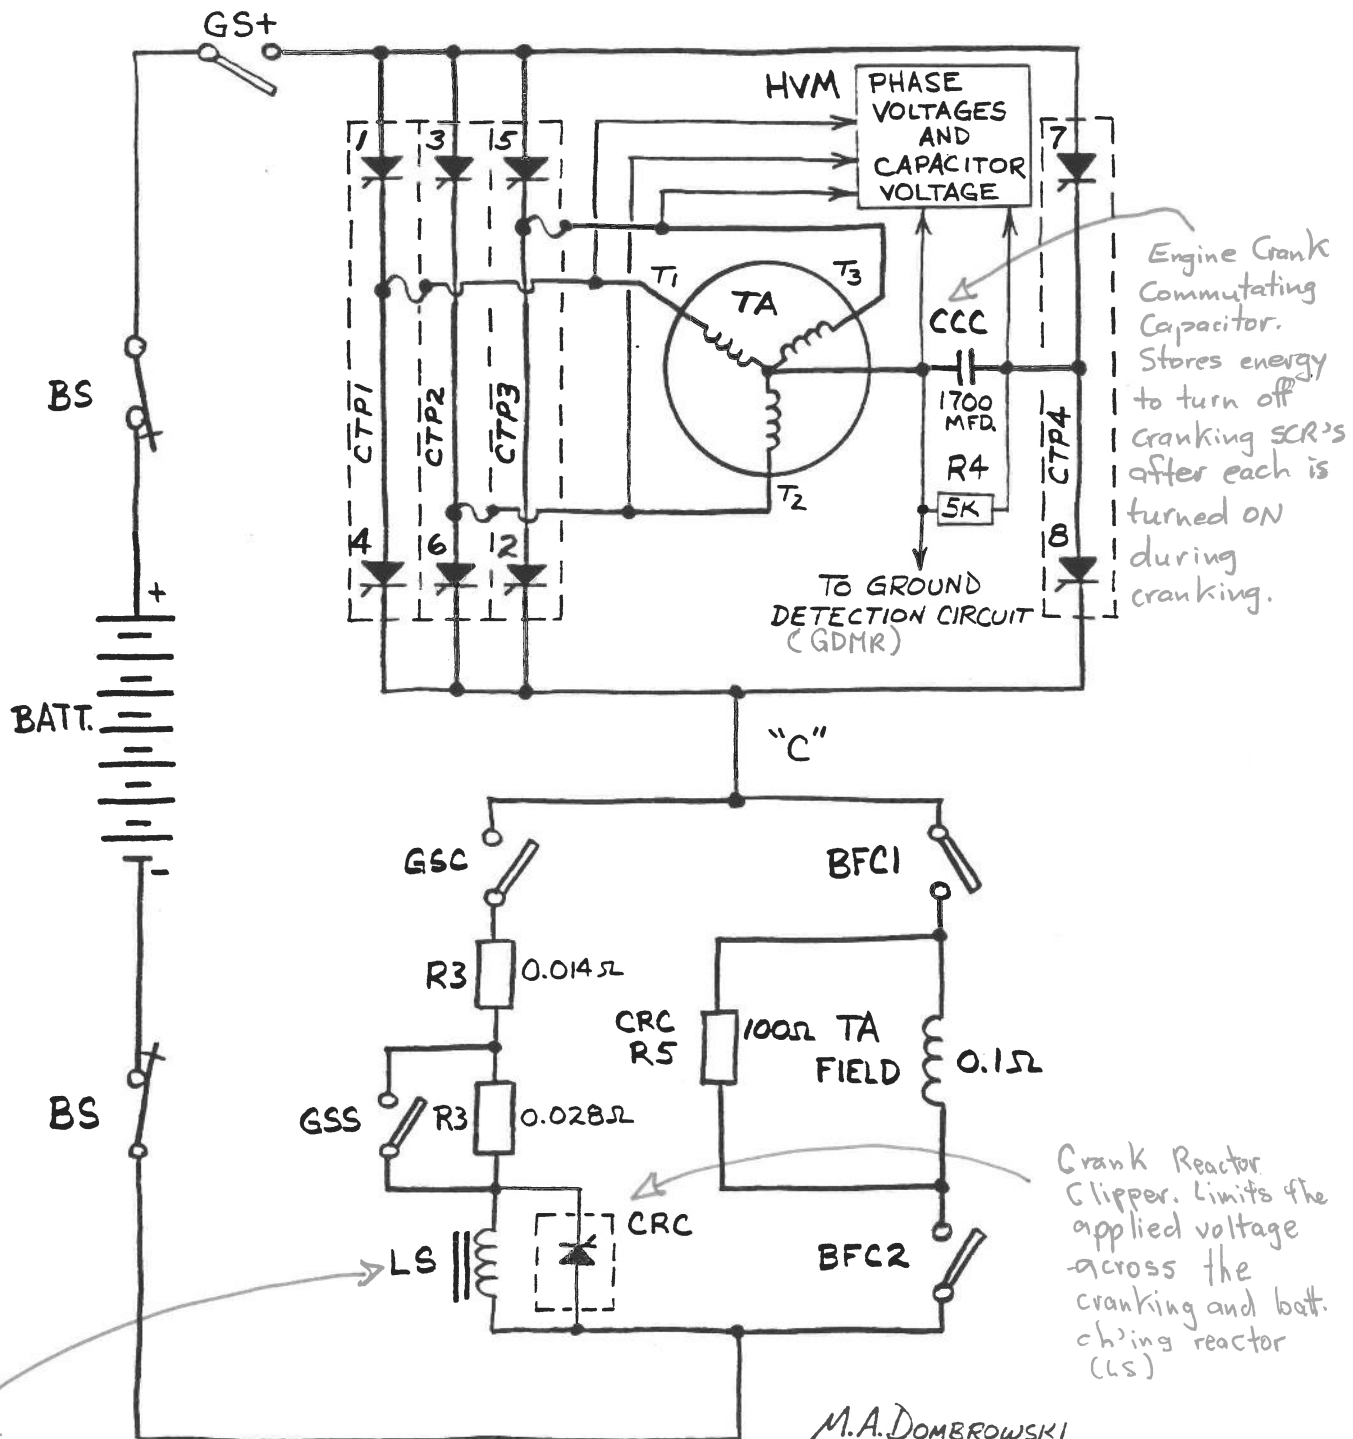 GS+
HVM
PHASE
VOLTAGES
AND
CAPACITOR
VOLTAGE
1
3
5
7
T1
T3
TA
CCC
1700
MFD.
R4
5K
T2
BS
CTP1
CTP2
CTP3
CTP4
4
6
2
8
TO GROUND
DETECTION CIRCUIT
(GDMR)
Engine Crank
Commutating
Capacitor.
Stores energy
to turn off
cranking SCR's
after each is
turned ON
during
cranking.
+
BATT.
-
"C"
GSC
BFC1
R3 0.014Ω
CRC
R5
100Ω
TA
FIELD
0.1Ω
BS
GSS
R3 0.028Ω
LS
CRC
BFC2
Crank Reactor
Clipper. Limits the
applied voltage
across the
cranking and batt.
ch'ing reactor
(LS)
M.A. DOMBROWSKI